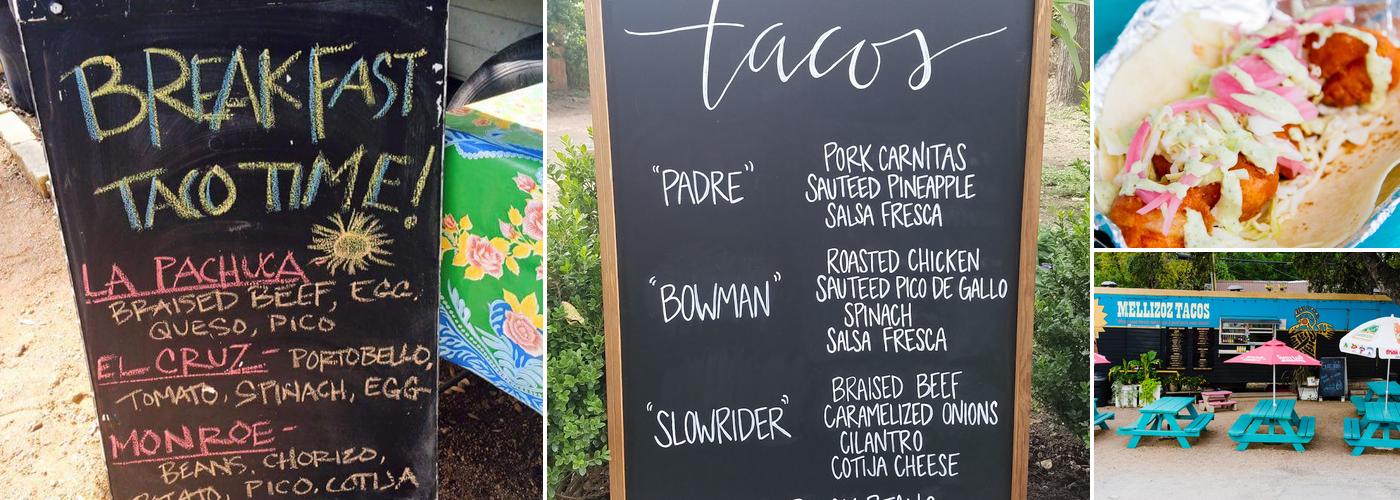 BREAKFAST
TACO TIME!
LA PACHUCA -
BRAISED BEEF, EGG.
QUESO, PICO
EL CRUZ - PORTOBELLO,
TOMATO, SPINACH, EGG
MONROE -
BEANS, CHORIZO,
POTATO, PICO, COTIJA
tacos
"PADRE"
PORK CARNITAS
SAUTEED PINEAPPLE
SALSA FRESCA
"BOWMAN"
ROASTED CHICKEN
SAUTEED PICO DE GALLO
SPINACH
SALSA FRESCA
"SLOWRIDER"
BRAISED BEEF
CARAMELIZED ONIONS
CILANTRO
COTIJA CHEESE
MELLIZOZ TACOS